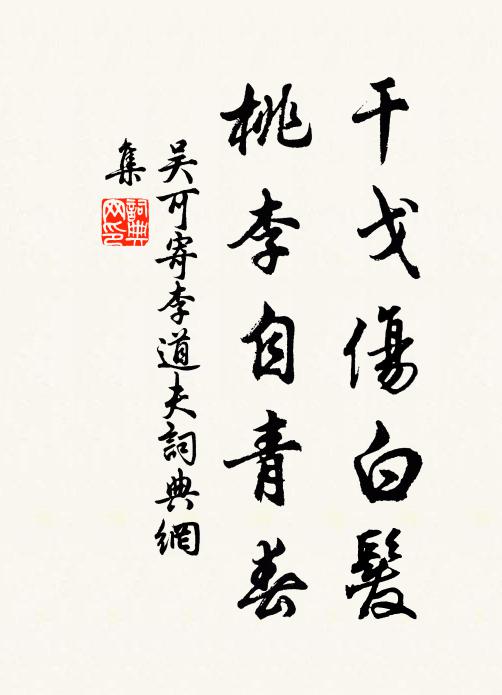 干戈傷白髮
桃李自青春
吳可寄李道夫詞典網
集
詞典網印